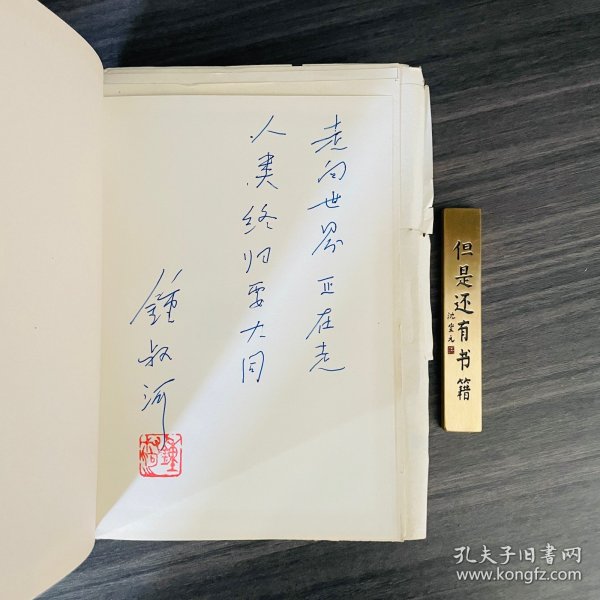 走向世界 正在走
人类终归要大同
鍾叔河
鍾叔河
但是还有书籍
沈堂元
孔夫子旧书网
www.kongfz.com